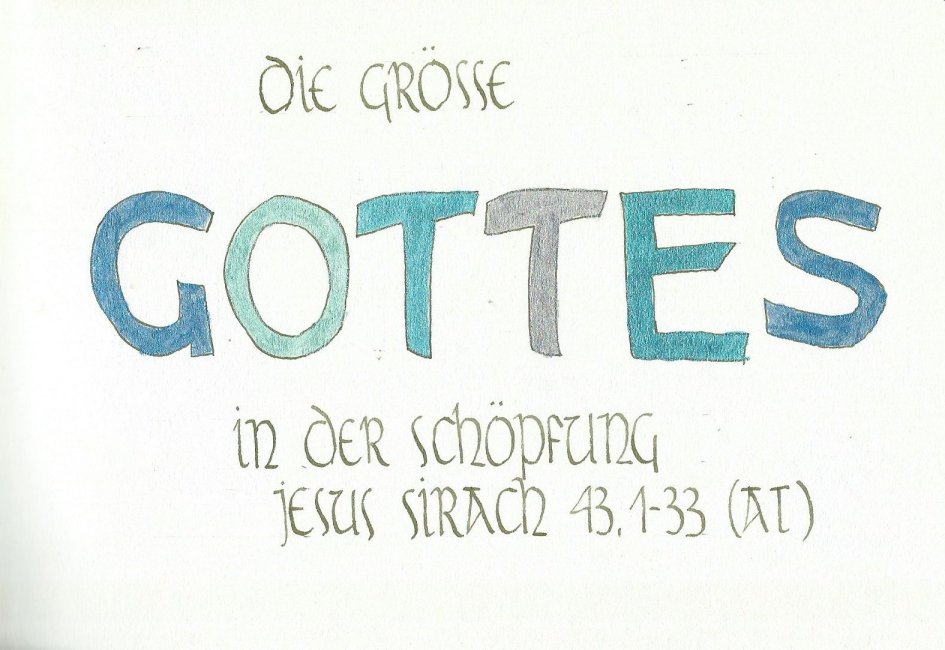 DIE GRÖSSE
GOTTES
IN DER SCHÖPFUNG
JESUS SIRACH 43,1-33 (AT)